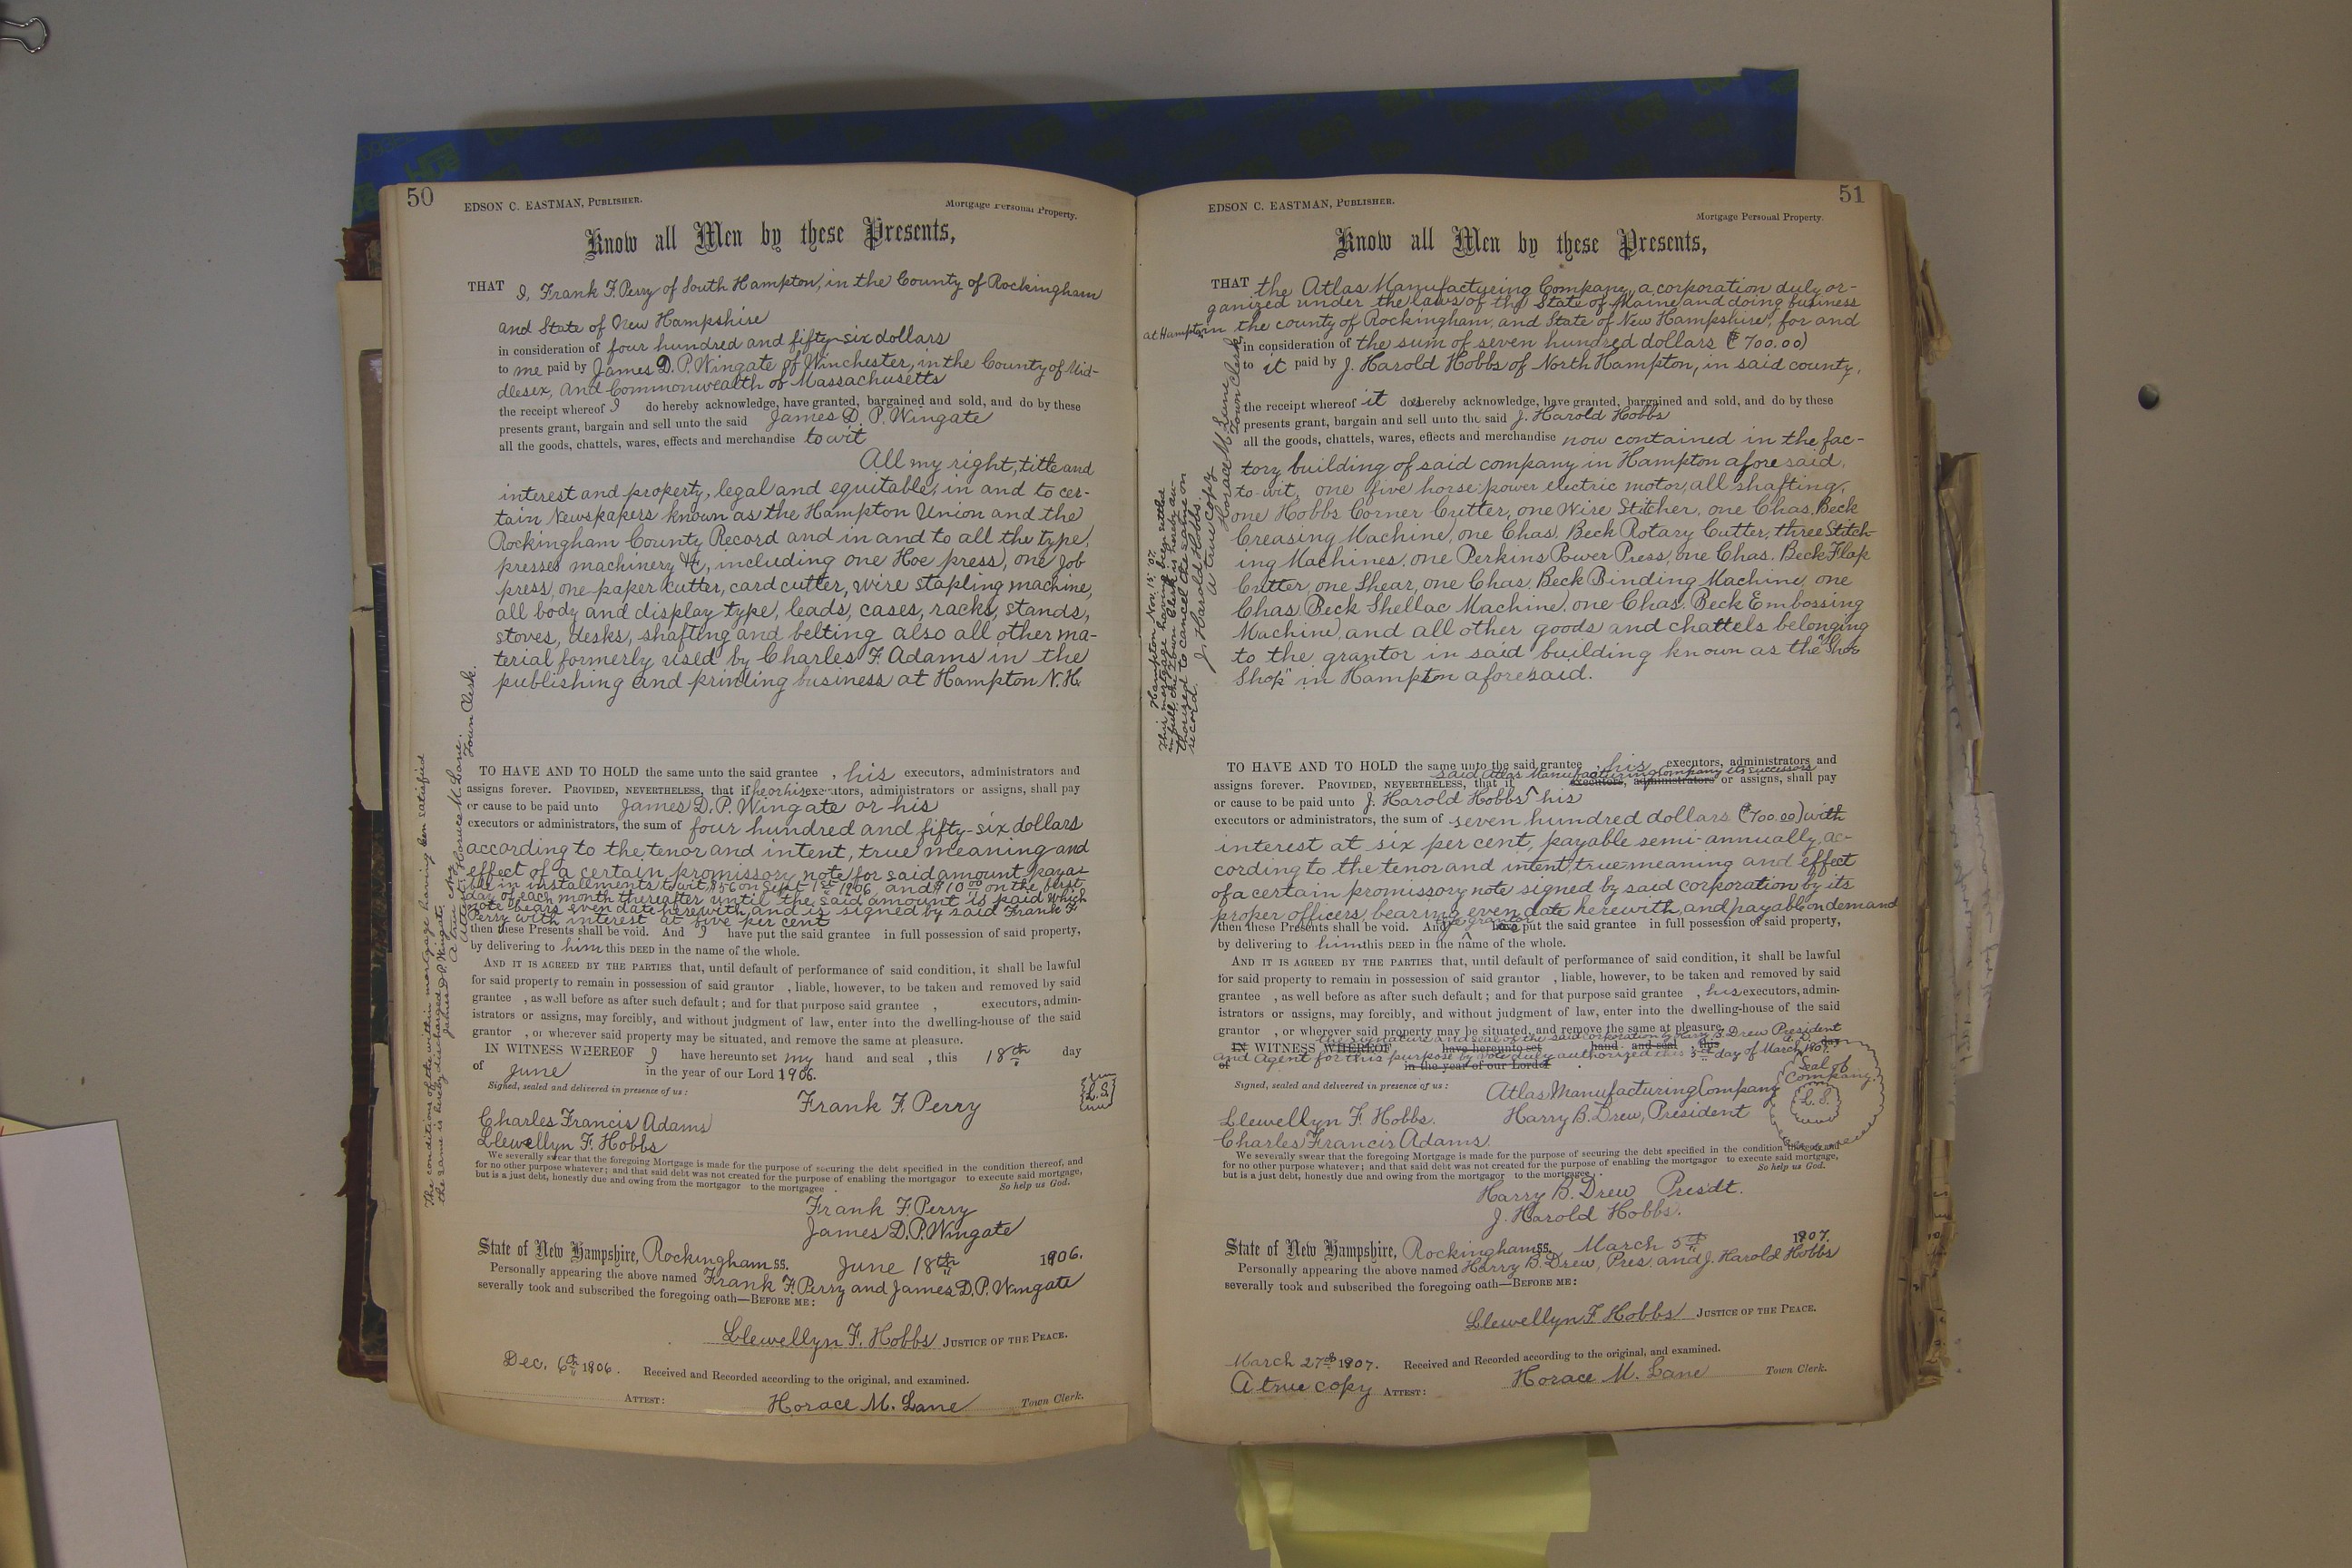 50
EDSON C. EASTMAN, PUBLISHER.
Mortgage Personal Property.
Know all Men by these Presents,
THAT I, Frank F. Perry of South Hampton, in the County of Rockingham
and State of New Hampshire
in consideration of four hundred and fifty-six dollars
to me paid by James D. P. Wingate of Winchester, in the County of Mid-
dlesex, and Commonwealth of Massachusetts
the receipt whereof I do hereby acknowledge, have granted, bargained and sold, and do by these
presents grant, bargain and sell unto the said James D. P. Wingate
all the goods, chattels, wares, effects and merchandise to wit
All my right, title and
interest and property, legal and equitable, in and to cer-
tain Newspapers known as the Hampton Union and the
Rockingham County Record and in and to all the type,
presses machinery &c, including one Hoe press, one Job
press, one paper cutter, card cutter, wire stapling machine,
all body and display type, leads, cases, racks, stands,
stoves, desks, shafting and belting also all other ma-
terial formerly used by Charles F. Adams in the
publishing and printing business at Hampton N.H.
TO HAVE AND TO HOLD the same unto the said grantee , his executors, administrators and
assigns forever. PROVIDED, NEVERTHELESS, that if he or his executors, administrators or assigns, shall pay
or cause to be paid unto James D. P. Wingate or his
executors or administrators, the sum of four hundred and fifty-six dollars
according to the tenor and intent, true meaning and
effect of a certain promissory note for said amount paya-
ble in installments to wit, $56 on Sept 1st 1906 and $10.00 on the first
day of each month thereafter until the said amount is paid which
note bears even date herewith and is signed by said Frank F.
Perry with interest at five per cent
then these Presents shall be void. And I have put the said grantee in full possession of said property,
by delivering to him this DEED in the name of the whole.
AND IT IS AGREED BY THE PARTIES that, until default of performance of said condition, it shall be lawful
for said property to remain in possession of said grantor , liable, however, to be taken and removed by said
grantee , as well before as after such default; and for that purpose said grantee , executors, admin-
istrators or assigns, may forcibly, and without judgment of law, enter into the dwelling-house of the said
grantor , or wherever said property may be situated, and remove the same at pleasure.
IN WITNESS WHEREOF I have hereunto set my hand and seal , this 18th day
of June in the year of our Lord 1906.
Signed, sealed and delivered in presence of us:
Frank F. Perry
L.S.
Charles Francis Adams
Llewellyn F. Hobbs
We severally swear that the foregoing Mortgage is made for the purpose of securing the debt specified in the condition thereof, and
for no other purpose whatever; and that said debt was not created for the purpose of enabling the mortgagor to execute said mortgage,
but is a just debt, honestly due and owing from the mortgagor to the mortgagee . So help us God.
Frank F. Perry
James D. P. Wingate
State of New Hampshire, Rockingham SS. June 18th 1906.
Personally appearing the above named Frank F. Perry and James D. P. Wingate
severally took and subscribed the foregoing oath—BEFORE ME:
Llewellyn F. Hobbs JUSTICE OF THE PEACE.
Dec. 6th 1906. Received and Recorded according to the original, and examined.
ATTEST: Horace M. Lane Town Clerk.
The conditions of the within mortgage having been satisfied
the same is hereby discharged.
James D. P. Wingate
A true copy
Attest: Horace M. Lane.
Town Clerk.
51
EDSON C. EASTMAN, PUBLISHER.
Mortgage Personal Property.
Know all Men by these Presents,
THAT the Atlas Manufactureing Company, a corporation duly or-
ganized under the laws of the State of Maine and doing business
at Hampton in the county of Rockingham, and State of New Hampshire, for and
in consideration of the sum of seven hundred dollars ($700.00)
to it paid by J. Harold Hobbs of North Hampton, in said county,
the receipt whereof it does hereby acknowledge, have granted, bargained and sold, and do by these
presents grant, bargain and sell unto the said J. Harold Hobbs
all the goods, chattels, wares, effects and merchandise now contained in the fac-
tory building of said company in Hampton aforesaid,
to-wit, one five horse power electric motor, all shafting,
one Hobbs Corner Cutter, one Wire Stitcher, one Chas. Beck
Creasing Machine, one Chas. Beck Rotary Cutter, three Stitch-
ing Machines, one Perkins Power Press, one Chas. Beck Flap
Cutter, one Shear, one Chas. Beck Binding Machine, one
Chas. Beck Shellac Machine, one Chas. Beck Embossing
Machine, and all other goods and chattels belonging
to the grantor in said building known as the "Shoe
Shop" in Hampton aforesaid.
TO HAVE AND TO HOLD the same unto the said grantee , his executors, administrators and
said Atlas Manufacturing Company its successors
assigns forever. PROVIDED, NEVERTHELESS, that if executors, administrators or assigns, shall pay
or cause to be paid unto J. Harold Hobbs his
executors or administrators, the sum of seven hundred dollars ($700.00) with
interest at six per cent, payable semi-annually ac-
cording to the tenor and intent, true meaning and effect
of a certain promissory note signed by said corporation by its
proper officers, bearing even date herewith, and payable on demand
then these Presents shall be void. And the grantor have put the said grantee in full possession of said property,
by delivering to him this DEED in the name of the whole.
AND IT IS AGREED BY THE PARTIES that, until default of performance of said condition, it shall be lawful
for said property to remain in possession of said grantor , liable, however, to be taken and removed by said
grantee , as well before as after such default; and for that purpose said grantee , his executors, admin-
istrators or assigns, may forcibly, and without judgment of law, enter into the dwelling-house of the said
grantor , or wherever said property may be situated, and remove the same at pleasure.
the signature and seal of the said corporation, Harry B. Drew President
IN WITNESS WHEREOF have hereunto set hand and seal , this day
and Agent for this purpose by vote duly authorized this 5th day of March 1907.
of in the year of our Lord
Signed, sealed and delivered in presence of us:
Atlas Manufacturing Company
Harry B. Drew, President
Seal of
Company.
L.S.
Llewellyn F. Hobbs.
Charles Francis Adams.
We severally swear that the foregoing Mortgage is made for the purpose of securing the debt specified in the condition thereof, and
for no other purpose whatever; and that said debt was not created for the purpose of enabling the mortgagor to execute said mortgage,
but is a just debt, honestly due and owing from the mortgagor to the mortgagee . So help us God.
Harry B. Drew Presdt.
J. Harold Hobbs.
State of New Hampshire, Rockingham SS. March 5th 1907.
Personally appearing the above named Harry B. Drew, Pres. and J. Harold Hobbs
severally took and subscribed the foregoing oath—BEFORE ME:
Llewellyn F. Hobbs JUSTICE OF THE PEACE.
March 27th 1907. Received and Recorded according to the original, and examined.
A true copy ATTEST: Horace M. Lane Town Clerk.
Hampton, Nov. 15, '07.
This mortgage having been settled
in full, the Town Clerk is hereby au-
thorized to cancel the same on
record.
J. Harold Hobbs.
A true copy
Horace M. Lane
Town Clerk.